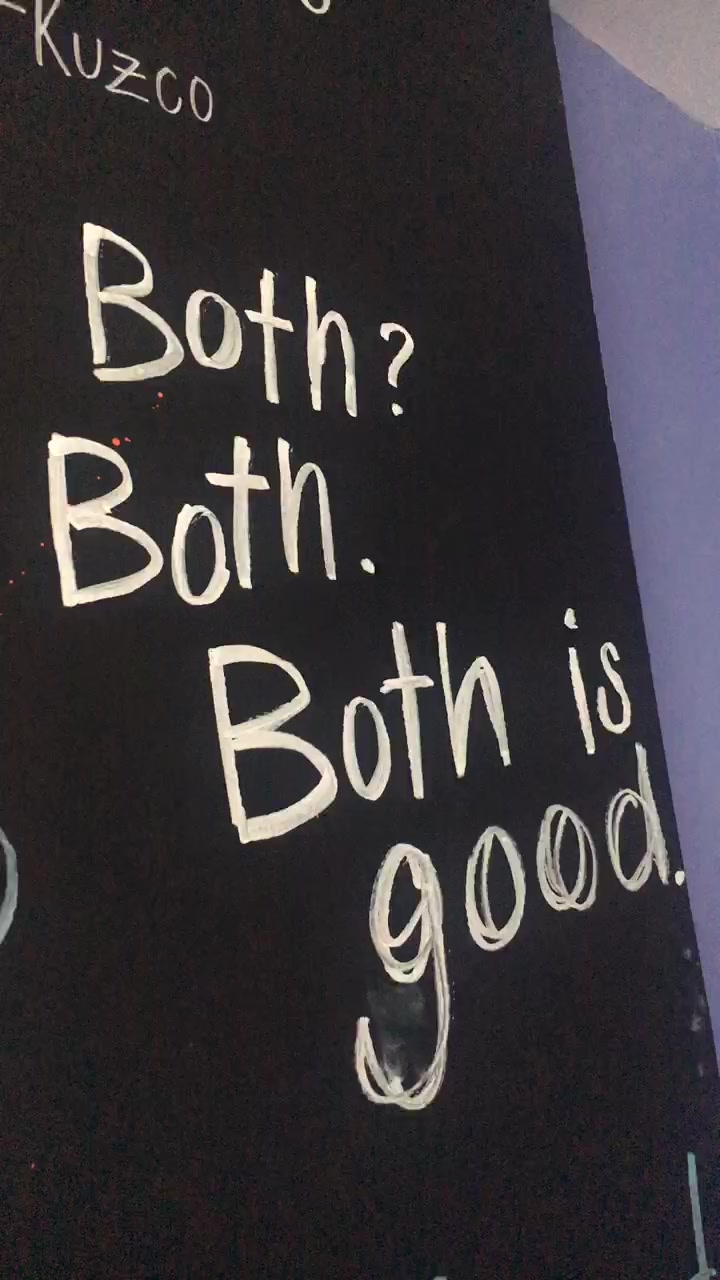 -Kuzco
Both?
Both.
Both is
good.